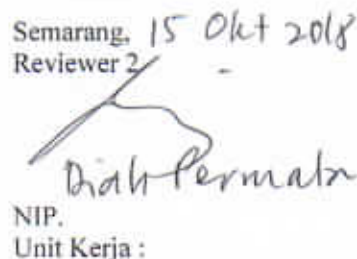 Semarang, 15 Okt 2018
Reviewer 2
Diah Permata
NIP.
Unit Kerja :